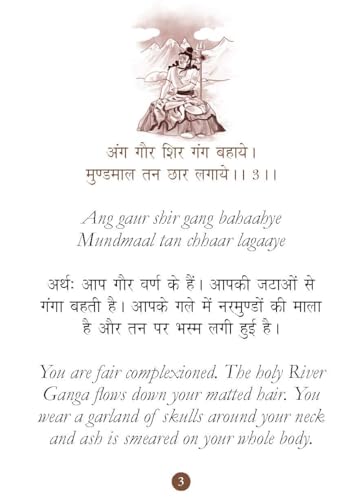 अंग गौर शिर गंग बहाये।
मुण्डमाल तन छार लगाये।। 3।।
Ang gaur shir gang bahaahye
Mundmaal tan chhaar lagaaye
अर्थः आप गौर वर्ण के हैं। आपकी जटाओं से
गंगा बहती है। आपके गले में नरमुण्डों की माला
है और तन पर भस्म लगी हुई है।
You are fair complexioned. The holy River
Ganga flows down your matted hair. You
wear a garland of skulls around your neck
and ash is smeared on your whole body.
3